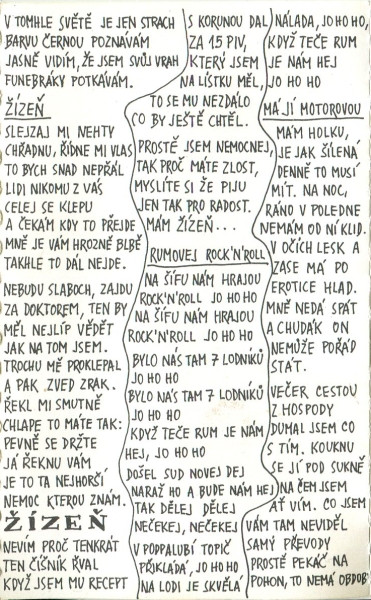 V TOMHLE SVĚTĚ JE JEN STRACH
BARVU ČERNOU POZNÁVÁM
JASNĚ VIDÍM, ŽE JSEM SVŮJ VRAH
FUNEBRÁKY POTKÁVÁM.
ŽÍZEŇ
SLEJZAJ MI NEHTY
CHŘADNU, ŘÍDNE MI VLAS
TO BYCH SNAD NEPŘÁL
LIDI NIKOMU Z VÁS
CELEJ SE KLEPU
A ČEKÁM KDY TO PŘEJDE
MNĚ JE VÁM HROZNĚ BLBĚ
TAKHLE TO DÁL NEJDE.
NEBUDU SLABOCH, ZAJDU
ZA DOKTOREM, TEN BY
MĚL NEJLÍP VĚDĚT
JAK NA TOM JSEM.
TROCHU MĚ PROKLEPAL
A PAK ZVED ZRAK.
ŘEKL MI SMUTNĚ
CHLAPE TO MÁTE TAK:
PEVNĚ SE DRŽTE
JÁ ŘEKNU VÁM
JE TO TA NEJHORŠÍ
NEMOC KTEROU ZNÁM.
ŽÍZEŇ
NEVÍM PROČ TENKRÁT
TEN ČÍŠNÍK ŘVAL
KDYŽ JSEM MU RECEPT
S KORUNOU DAL
ZA 15 PIV,
KTERÝ JSEM
NA LÍSTKU MĚL,
TO SE MU NEZDÁLO
CO BY JEŠTĚ CHTĚL.
PROSTĚ JSEM NEMOCNEJ,
TAK PROČ MÁTE ZLOST,
MYSLÍTE SI ŽE PIJU
JEN TAK PRO RADOST.
MÁM ŽÍZEŇ...
RUMOVEJ ROCK'N'ROLL
NA ŠÍFU NÁM HRAJOU
ROCK'N'ROLL JO HO HO
NA ŠÍFU NÁM HRAJOU
ROCK'N'ROLL JO HO HO
BYLO NÁS TAM 7 LODNÍKŮ
JO HO HO
BYLO NÁS TAM 7 LODNÍKŮ
JO HO HO
KDYŽ TEČE RUM JE NÁM
HEJ, JO HO HO
DOŠEL SUD NOVEJ DEJ
NARAŽ HO A BUDE NÁM HEJ
TAK DĚLEJ DĚLEJ
NEČEKEJ, NEČEKEJ
V PODPALUBÍ TOPIČ
PŘIKLÁDÁ, JO HO HO
NA LODI JE SKVĚLÁ
NÁLADA, JO HO HO,
KDYŽ TEČE RUM
JE NÁM HEJ
JO HO HO
MÁ JÍ MOTOROVOU
MÁM HOLKU,
JE JAK ŠÍLENÁ
DENNĚ TO MUSÍ
MÍT. NA NOC,
RÁNO V POLEDNE
NEMÁM OD NÍ KLID.
V OČÍCH LESK A
ZASE MÁ PO
EROTICE HLAD.
MNĚ NEDÁ SPÁT
A CHUDÁK ON
NEMŮŽE POŘÁD
STÁT.
VEČER CESTOU
Z HOSPODY
DUMAL JSEM CO
S TÍM. KOUKNU
SE JÍ POD SUKNĚ
NA ČEM JSEM
AŤ VÍM. CO JSEM
VÁM TAM NEVIDĚL
SAMÝ PŘEVODY
PROSTĚ PEKÁČ NA
POHON, TO NEMÁ OBDOB